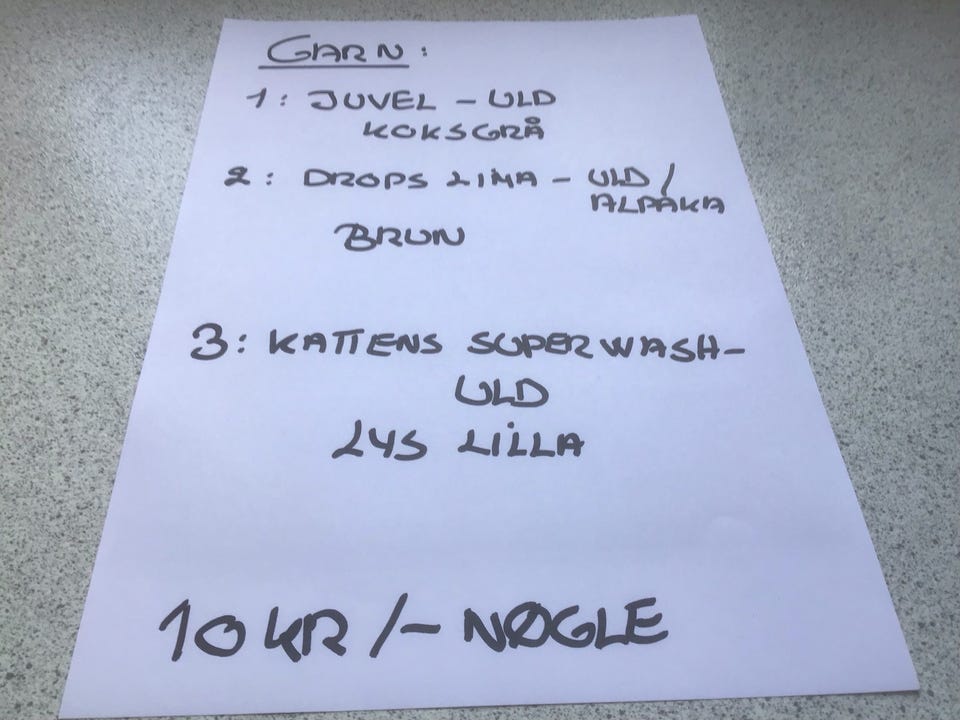 GARN:
1: JUVEL - ULD
KOKSGRÅ
2: DROPS LIMA - ULD/
ALPAKA
BRUN
3: KATTENS SUPERWASH-
ULD
LYS LILLA
10 KR/- NØGLE